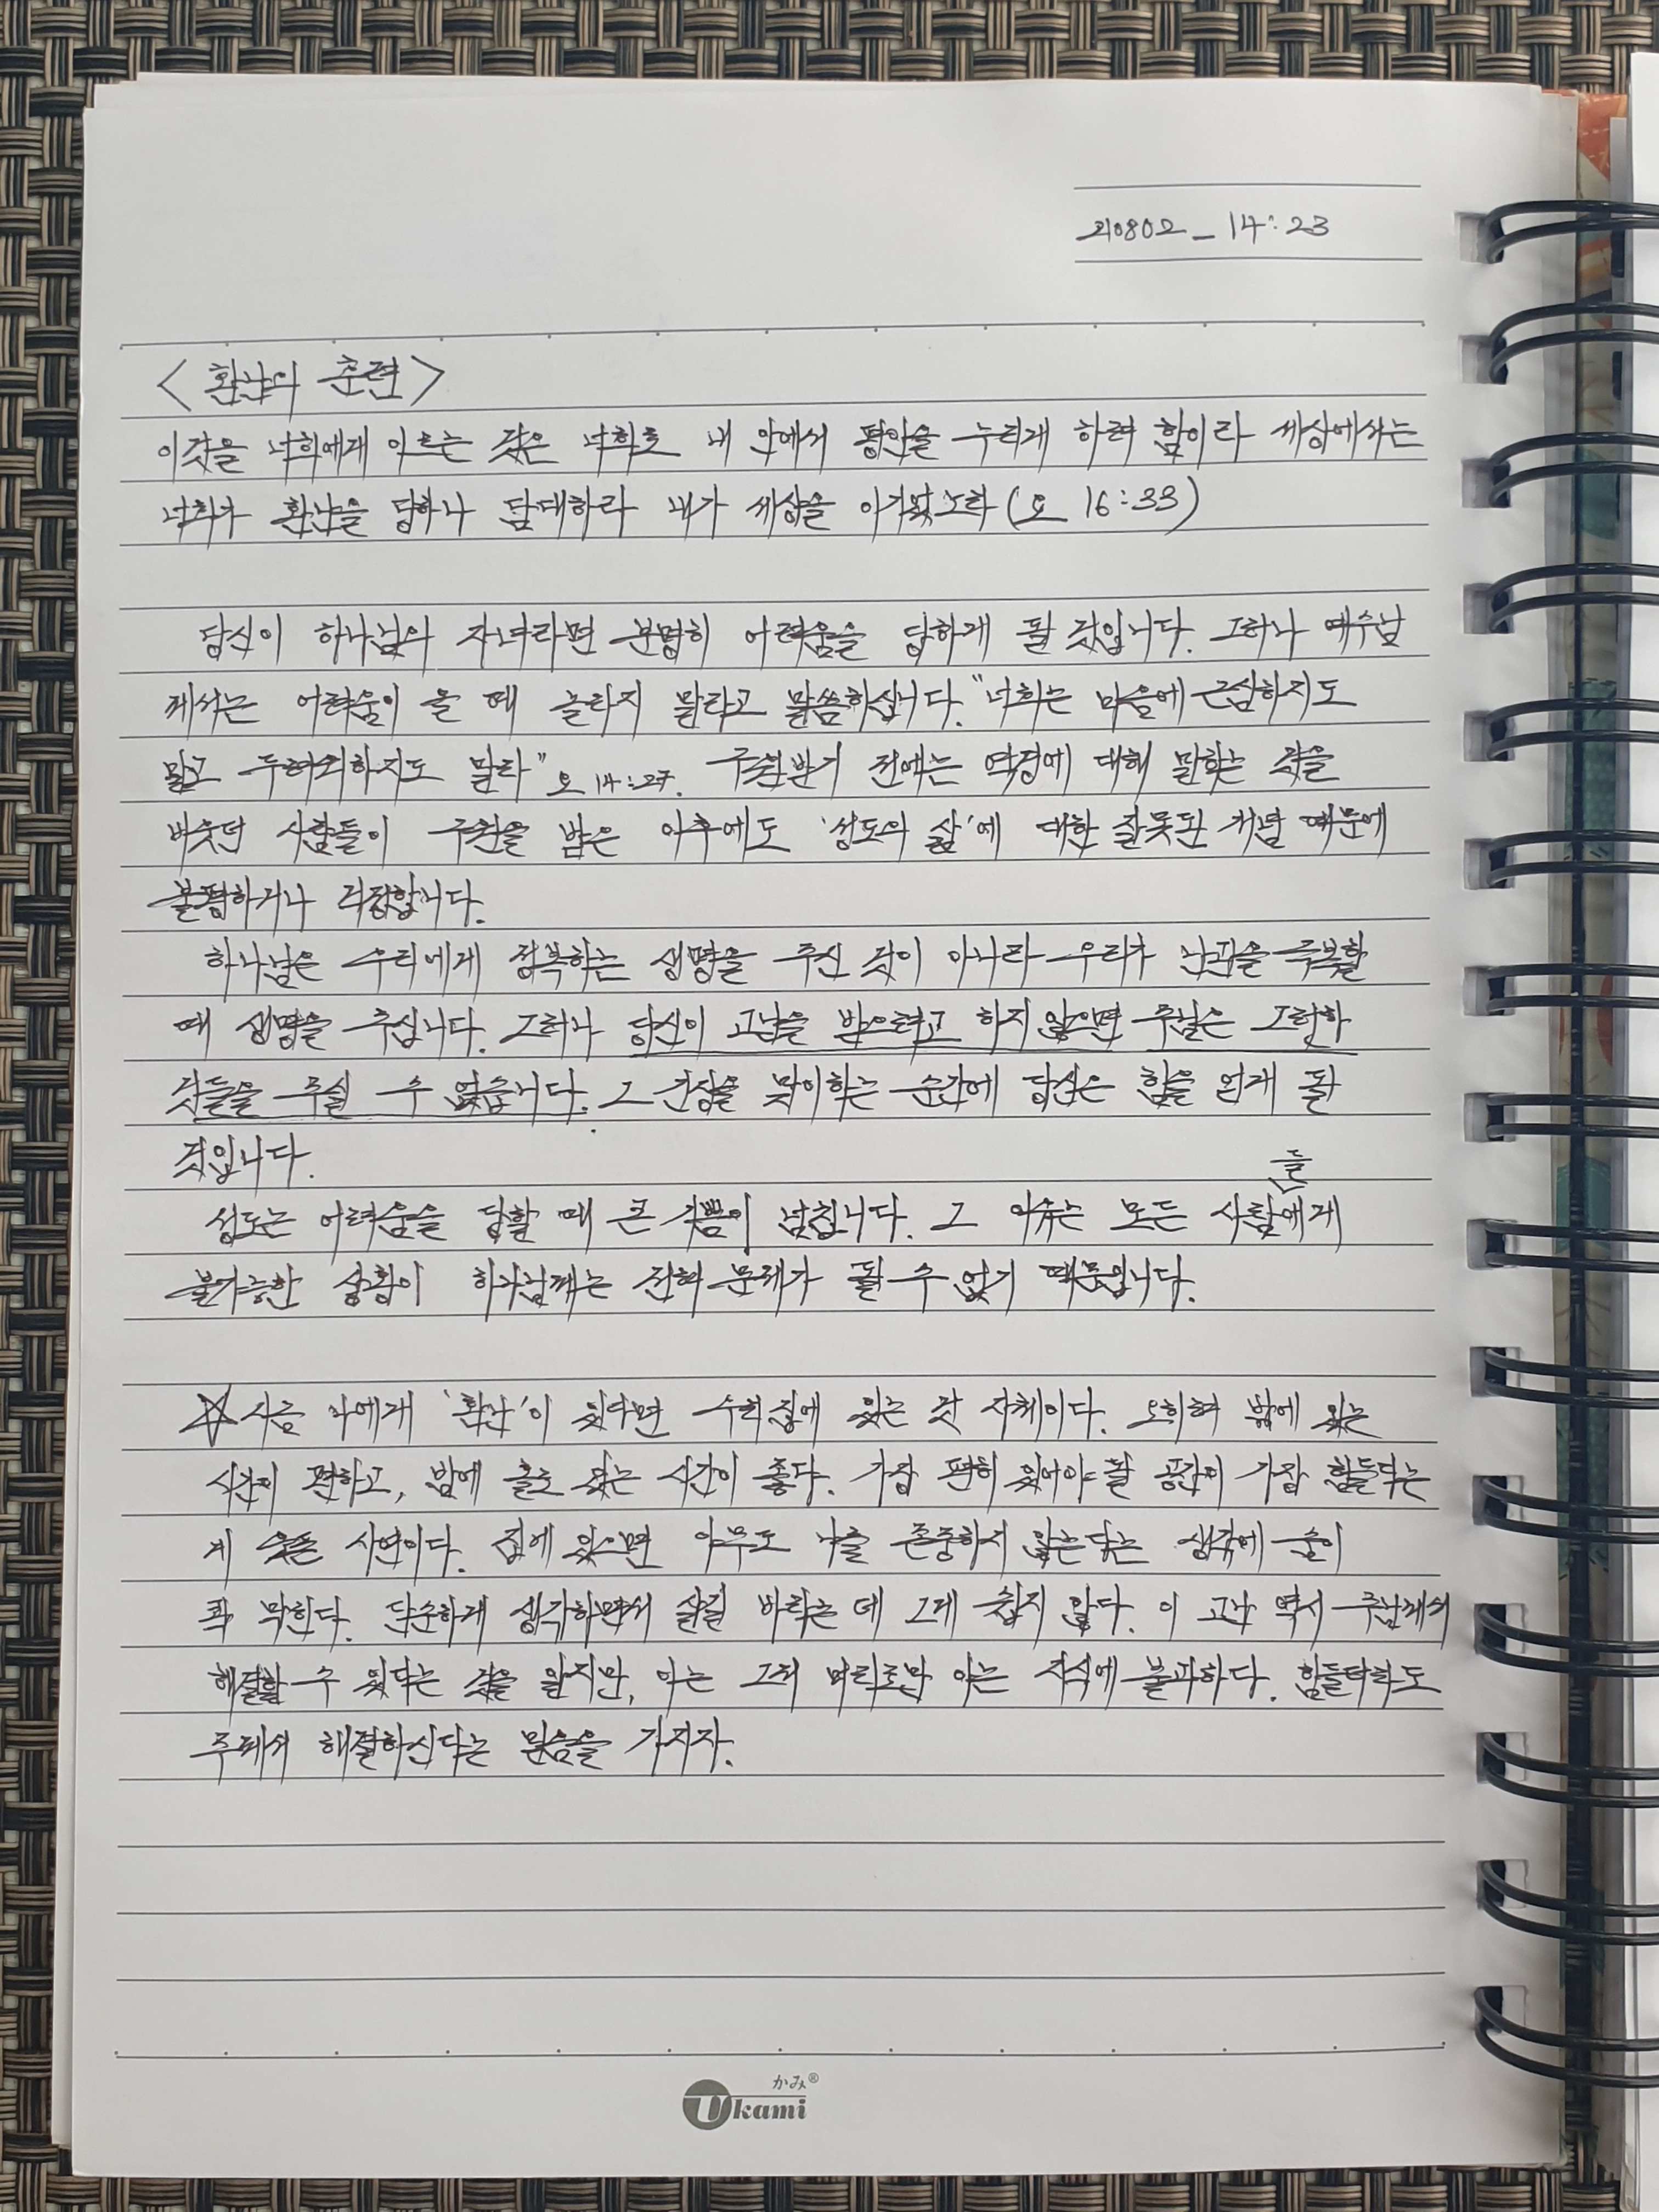 210802 _ 14:23
<환난의 훈련>
이것을 너희에게 이르는 것은 너희로 내 안에서 평안을 누리게 하려 함이라 세상에서는
너희가 환난을 당하나 담대하라 내가 세상을 이기었노라 (요 16:33)
당신이 하나님의 자녀라면 분명히 어려움을 당하게 될 것입니다. 그러나 예수님
께서는 어려움이 올 때 놀라지 말라고 말씀하십니다. "너희는 마음에 근심하지도
말고 두려워하지도 말라" 요 14:27. 구원받기 전에는 역경에 대해 말하는 것을
비웃던 사람들이 구원을 받은 이후에도 '성도의 삶'에 대한 잘못된 개념 때문에
불평하거나 걱정합니다.
하나님은 우리에게 정복하는 생명을 주신 것이 아니라 우리가 난관을 극복할
때 생명을 주십니다. 그러나 당신이 고난을 받으려고 하지 않으면 주님은 그러한
것들을 주실 수 없습니다. 그 긴장을 맞이하는 순간에 당신은 힘을 얻게 될
것입니다.
들
성도는 어려움을 당할 때 큰 기쁨이 넘칩니다. 그 이유는 모든 사람에게
불가능한 상황이 하나님께는 전혀 문제가 될 수 없기 때문입니다.
☆ 지금 나에게 '환난'이 있다면 우리 집에 있는 것 자체이다. 오히려 밖에 있는
시간이 편하고, 밤에 홀로 있는 시간이 좋다. 가장 편히 있어야 할 공간이 가장 힘들다는
게 웃픈 사연이다. 집에 있으면 아무도 나를 존중하지 않는다는 생각에 숨이
콱 막힌다. 단순하게 생각하면서 살길 바라는 데 그게 쉽지 않다. 이 고난 역시 주님께서
해결할 수 있다는 것을 알지만, 아는 그저 머리로만 아는 지식에 불과하다. 힘들더라도
주께서 해결하신다는 믿음을 가지자.
かみ®
Ukami